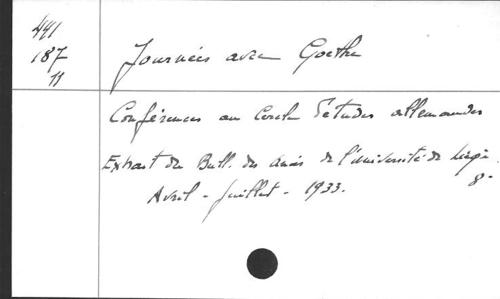 441
187
11
Journées avec Goethe
Conférences au Cercle d'études allemandes
Extrait du Bull. des amis de l'Université de Liège.
Avril - Juillet - 1933.
8°